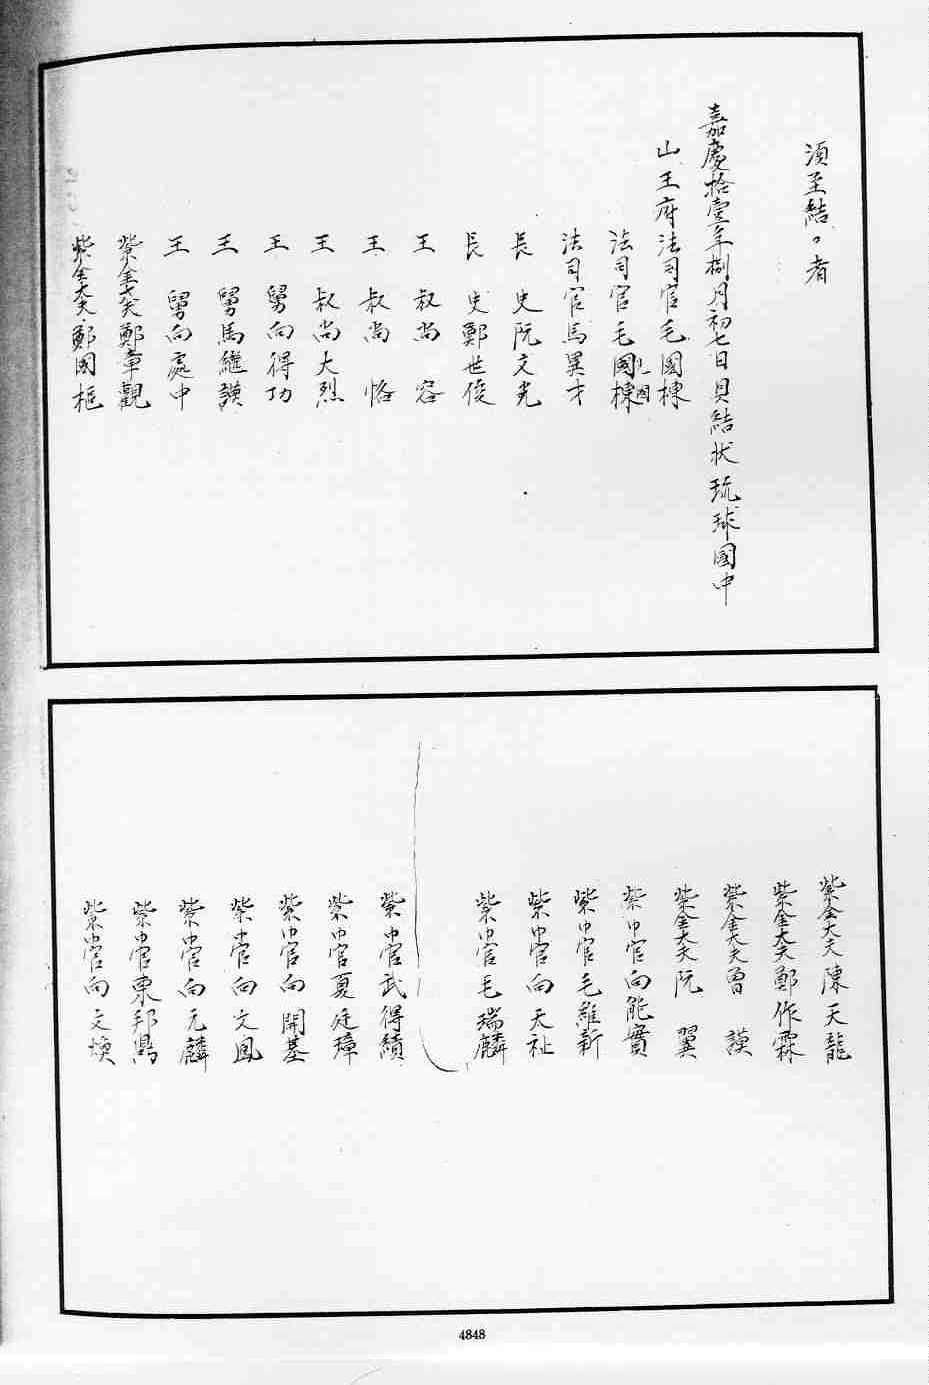 須至結〻者
嘉慶拾壹年捌月初七日具結狀琉球國中
山王府法司官毛國棟
法司官毛國棟
法司官馬異才
長史阮文光
長史鄭世俊
王叔尚容
王叔尚恪
王叔尚大烈
王舅向得功
王舅馬繼謨
王舅向處中
紫金大夫鄭章觀
紫金大夫鄭國樞
紫金大夫陳天龍
紫金大夫鄭作霖
紫金大夫曾謨
紫金大夫阮翼
紫巾官向能實
紫巾官毛維新
紫巾官向天祉
紫巾官毛瑞麟
紫巾官武得績
紫巾官夏廷璋
紫巾官向開基
紫巾官向文鳳
紫巾官向元麟
紫巾官東邦鼎
紫巾官向文煥
4848